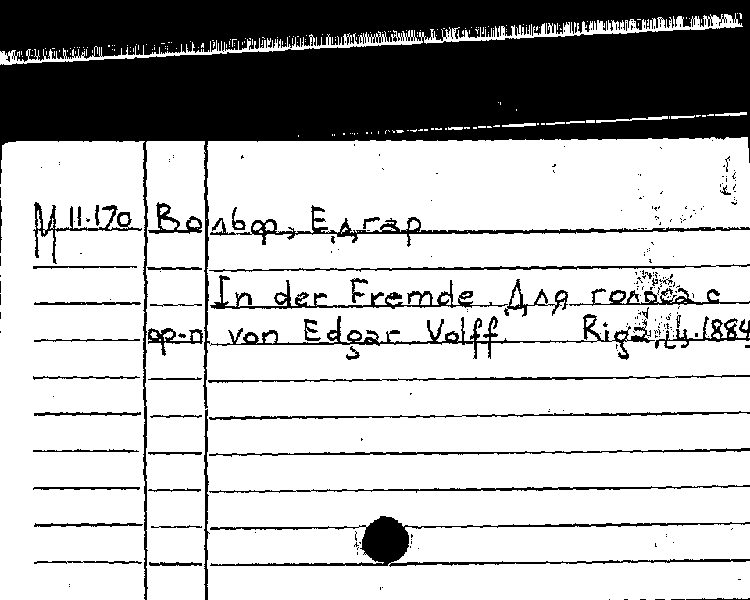 М 11.170 Вольф, Едгар
In der Fremde. Для голоса с
ф-п von Edgar Volff. Riga, 1884